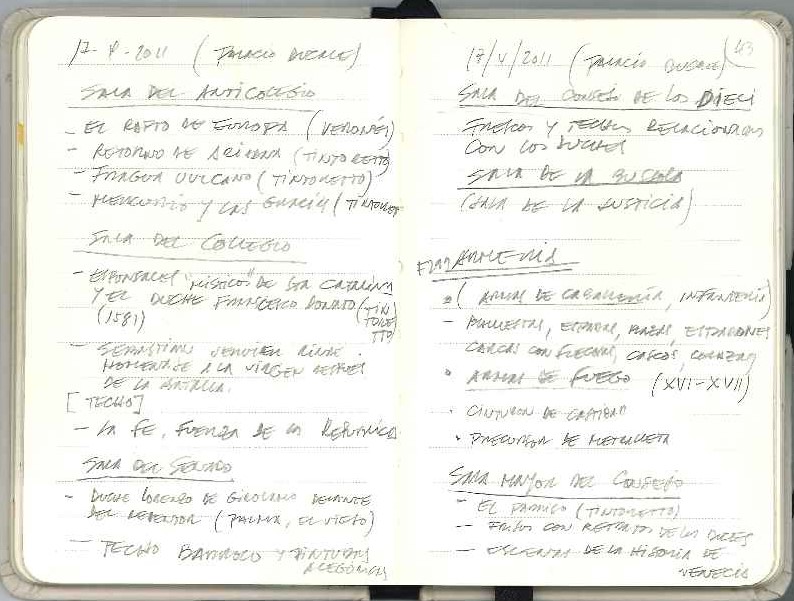 17-V-2011 (PALACIO DUCALE)
SALA DEL ANTICOLEGIO
- EL RAPTO DE EUROPA (VERONÉS)
- RETORNO DE ARIADNA (TINTORETTO)
- FRAGUA VULCANO (TINTORETTO)
- MERCURIO Y LAS GRACIAS (TINTORET
SALA DEL COLLEGIO
- ESPONSALES "MISTICOS" DE STA CATALINA
Y EL DUCHE FRANCESCO DONATO (TIN
(1581) TORE
TTO)
- SEBASTIAN VENIER RINDE
HOMENAJE A LA VIRGEN DESPUES
DE LA BATALLA.
[TECHO]
- LA FE, FUERZA DE LA REPUBLICA
SALA DEL SENADO
- DUCHE LORENZO DE GIROLAMO DELANTE
DEL REDENTOR (PALMA, EL VIEJO)
- TECHO BARROCO Y PINTURAS
ALEGÓRICAS
17/V/2011 (PALACIO DUCALE) 43
SALA DEL CONSEJO DE LOS DIECI
FRESCOS Y TECHOS RELACIONADOS
CON LOS DUCHES
SALA DE LA BUSSOLA
(SALA DE LA JUSTICIA)
ARMERIA
• (ARMAS DE CABALLERÍA, INFANTERÍA)
- BALLESTAS, ESPADAS, MAZAS, ESTANDARTES
CARCAS CON FLECHAS, CASCOS, CORAZAS
• ARMAS DE FUEGO (XVI-XVII)
• CINTURON DE CASTIDAD
• PRECURSOR DE METRALLETA
SALA MAYOR DEL CONSEJO
- EL PARAISO (TINTORETTO)
- FRISOS CON RETRATOS DE LOS DUCES
- ESCENAS DE LA HISTORIA DE
VENECIA